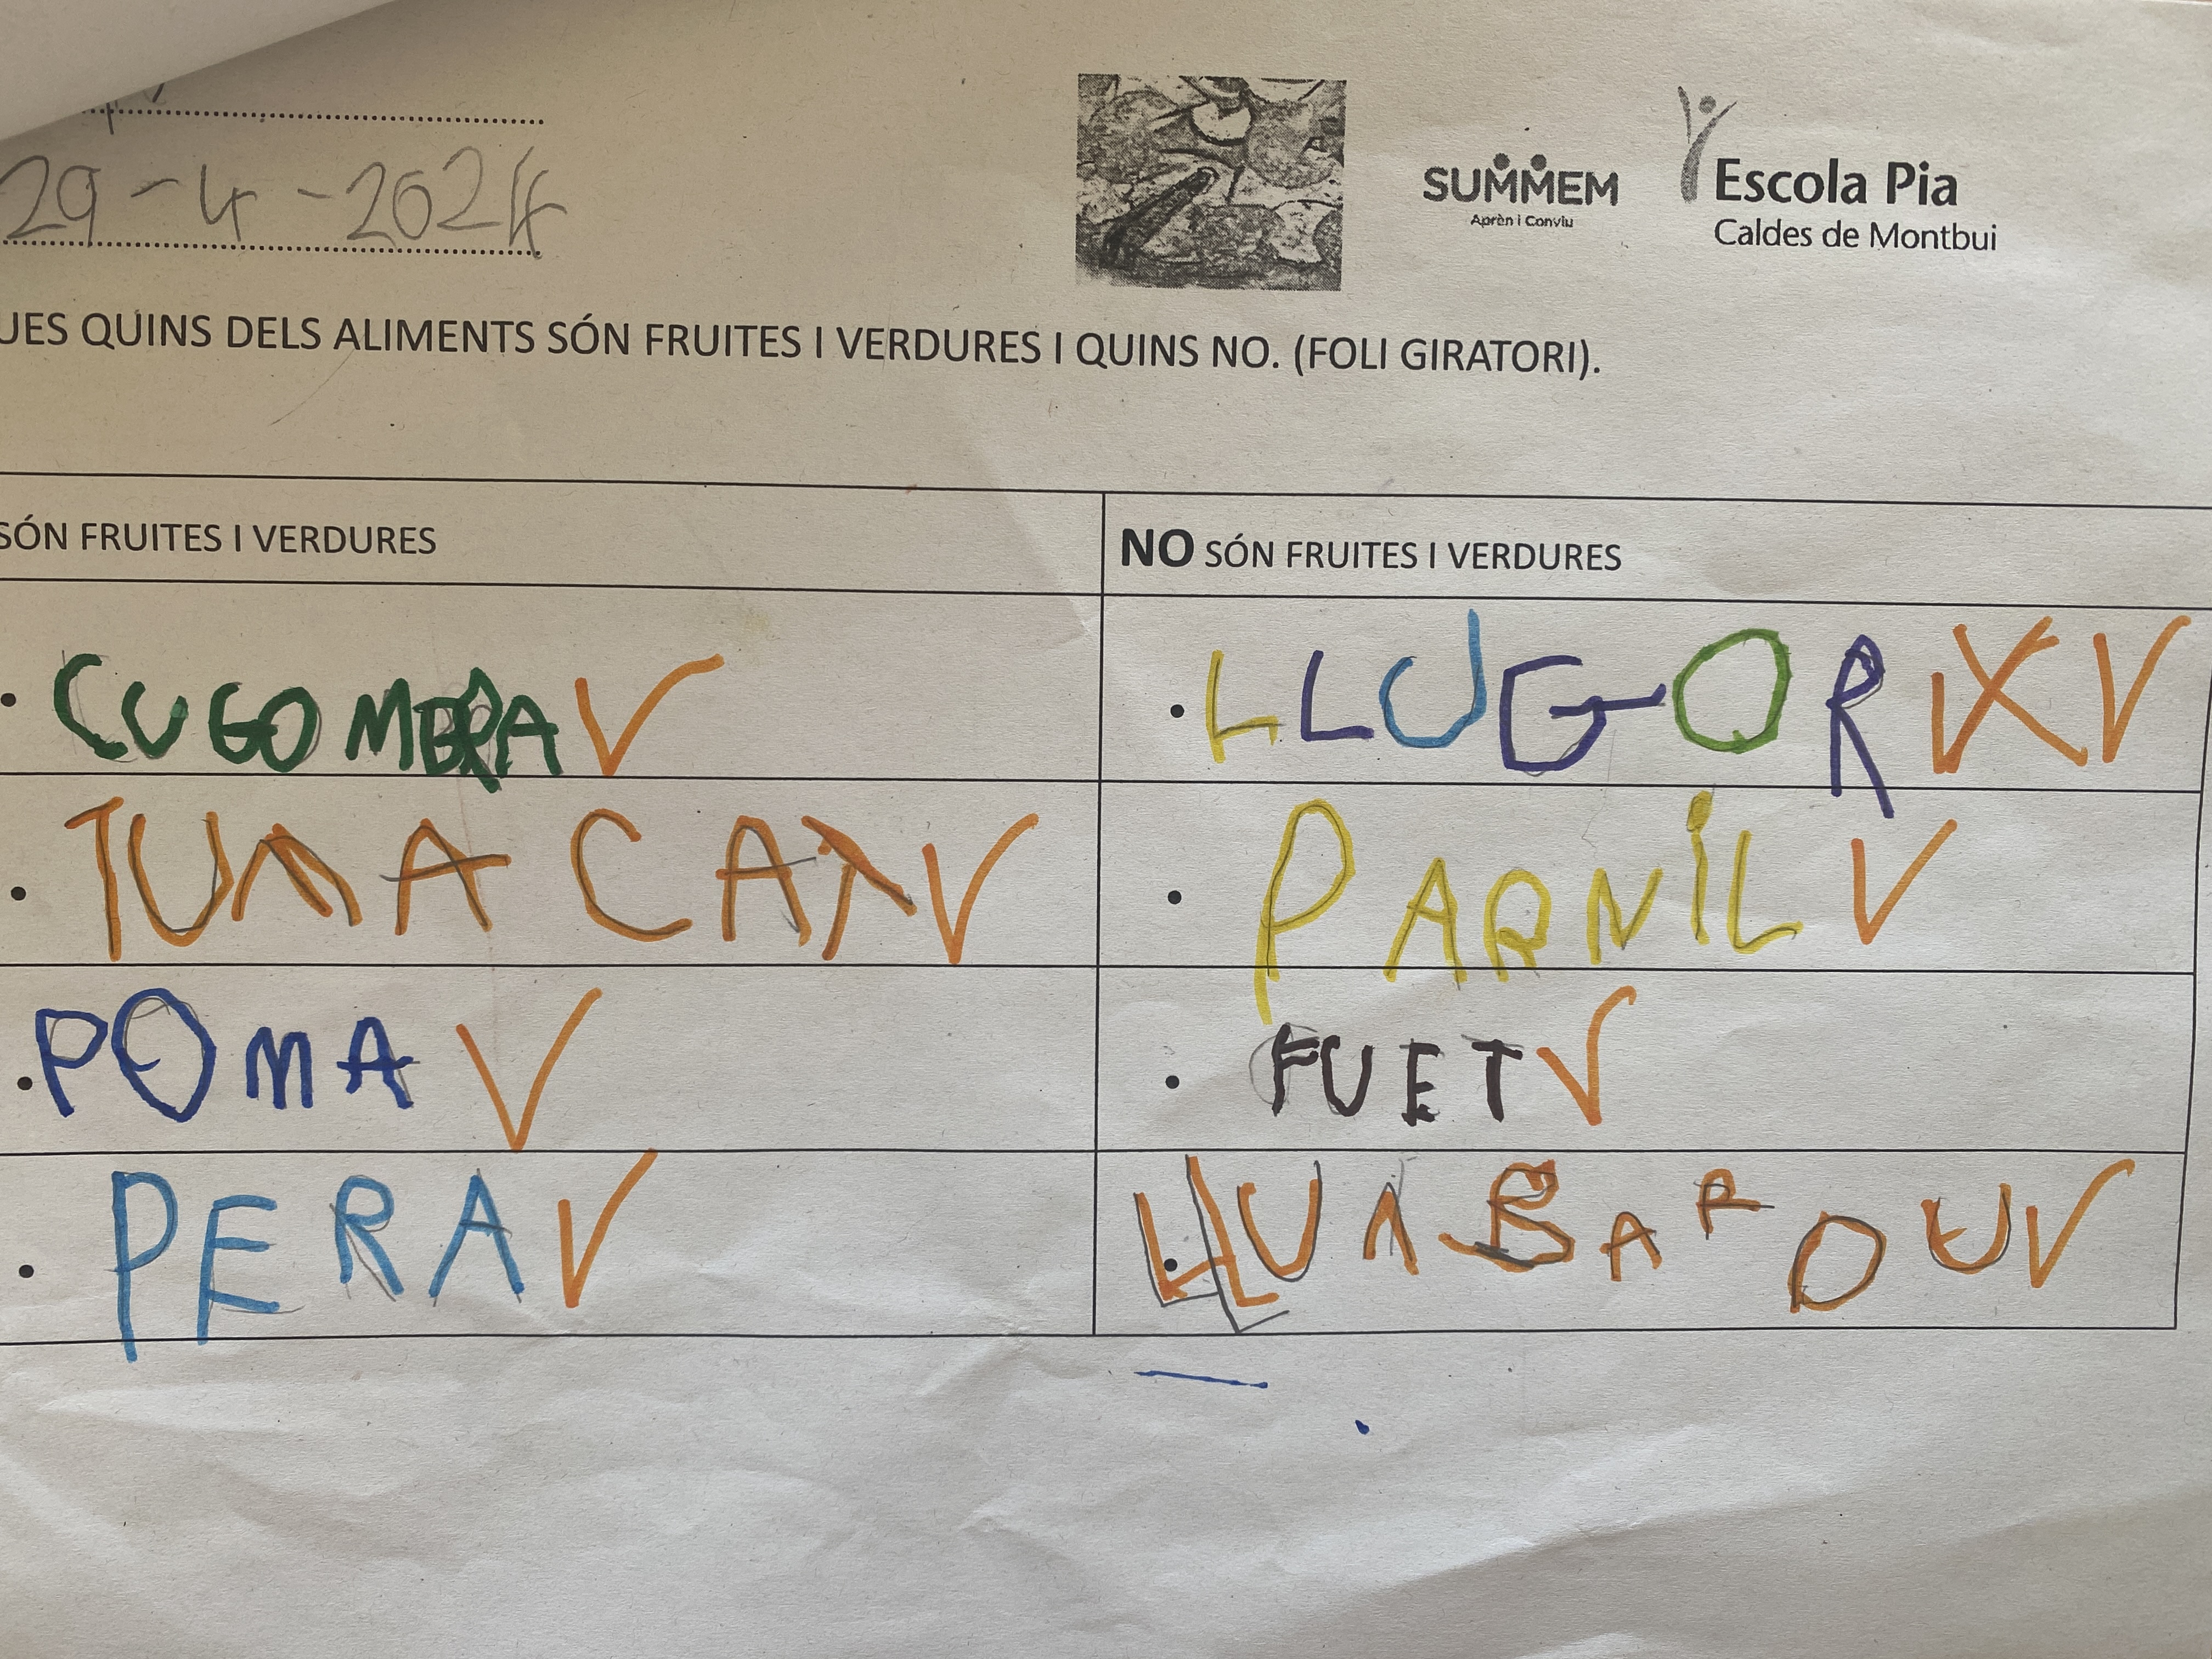 29-4-2024
SUMMEM
Aprèn i Conviu
Escola Pia
Caldes de Montbui
UES QUINS DELS ALIMENTS SÓN FRUITES I VERDURES I QUINS NO. (FOLI GIRATORI).
SÓN FRUITES I VERDURES
NO SÓN FRUITES I VERDURES
CUGOMERA
LLUGOR
TUMACAT
PARNIL
POMA
FUET
PERA